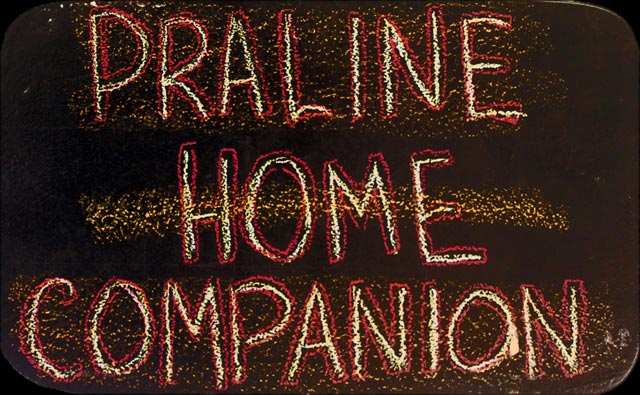 PRALINE
HOME
COMPANION